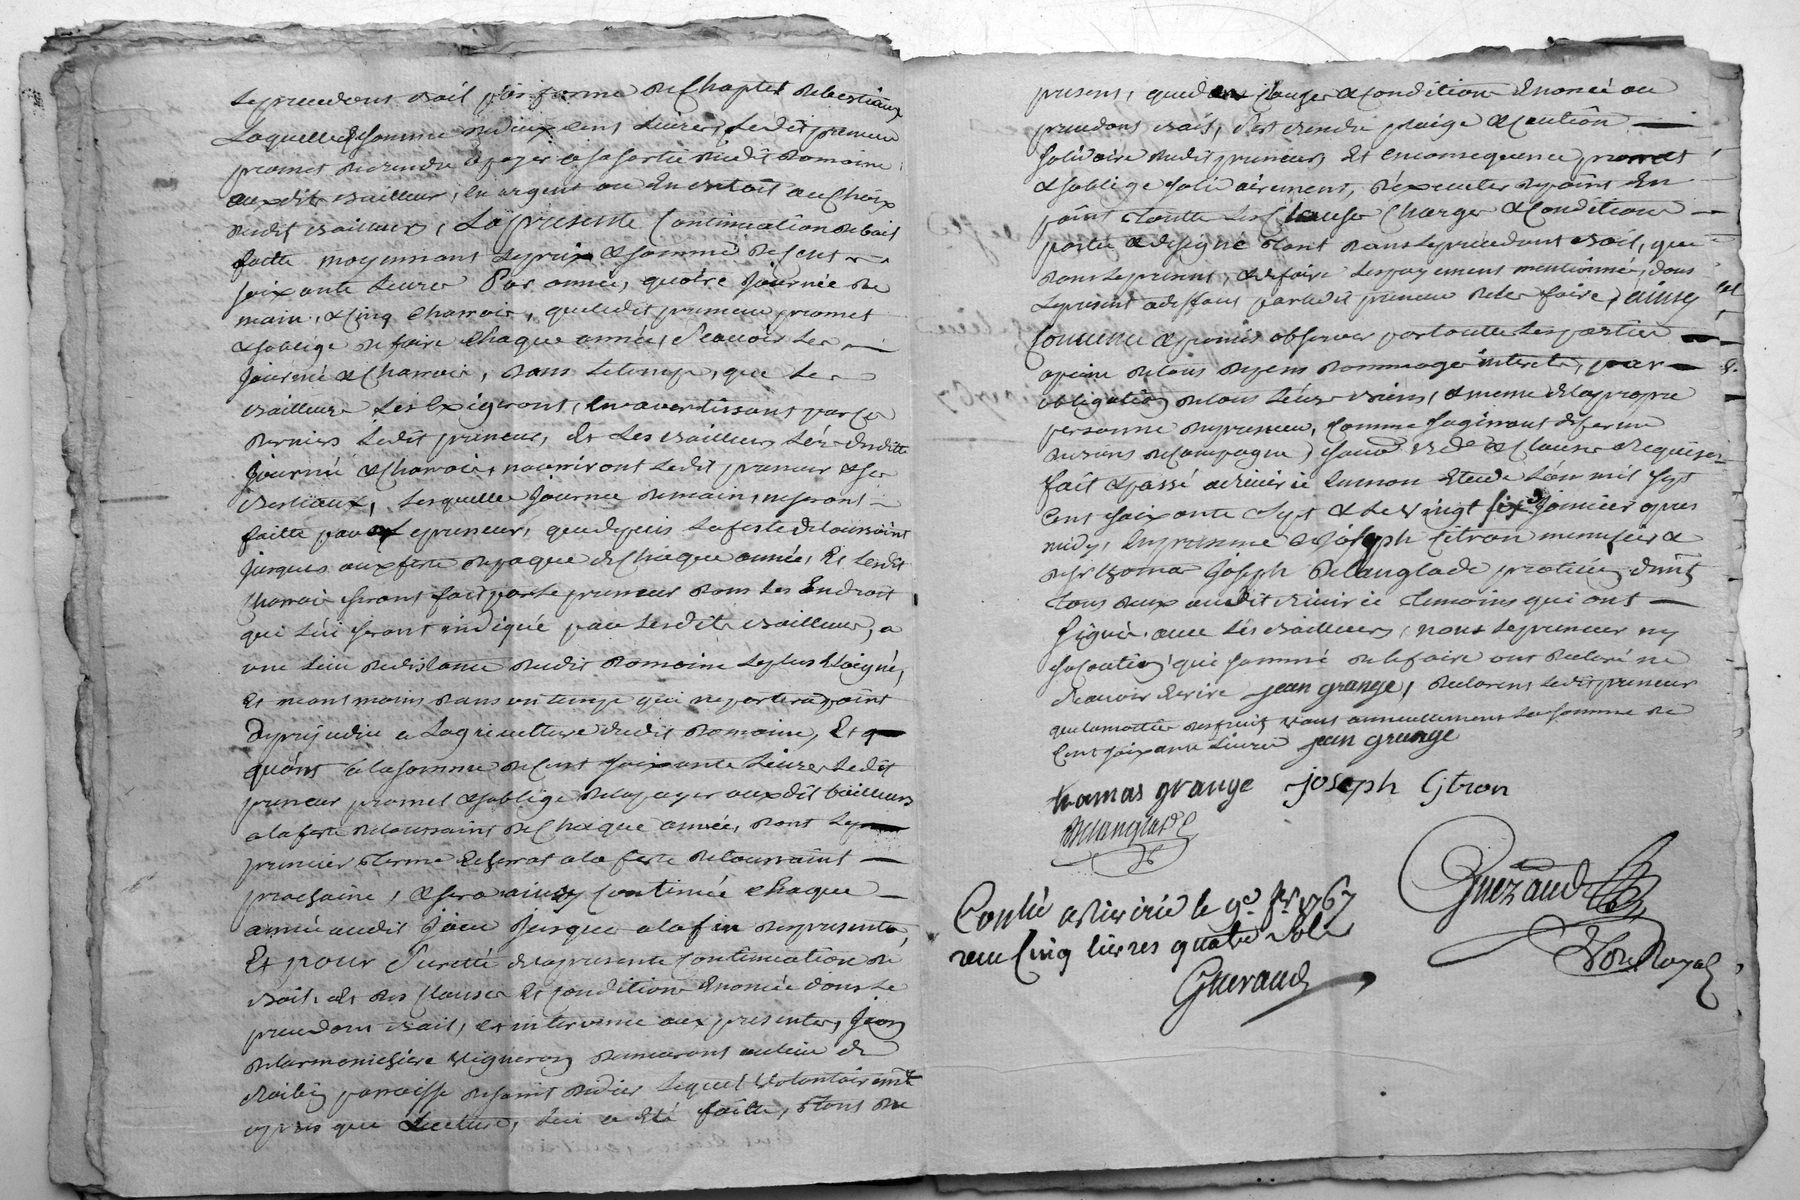 Le precedent bail par forme de Chaptel de bestiaux
Laquelle somme de deux cens Livres, Ledit preneur
promet de rendre & payer a sa sortie dudit Domaine
auxdits bailleur, en argent ou en bestail au Choix
desdits bailleurs, La presente Continuation de bail
faitte moyennant Le prix & somme de Cent
soixante Livres Par année, quatre Journée de
main, & Cinq Charroix, que ledit preneur promet
& soblige de faire Chaque année, Scavoir Les
Journé & Charroix, dans le temps, que Les
bailleurs Les Exigeront, en avertissant par Ce
derniers Ledit preneur, Et Les bailleurs Les dudittes
Journé & Charroix, nourriront Ledit preneur & ses
Bestiaux, Lesquelle Journee de main, ne seront
faitte par Le preneur, que depuis La feste de toussaint
Jusques aux feste de paque de Chaque année, Et Lesdit
Charroix seront fait par Le preneur dans Les Endroit
qui Lui seront indiqué par Lesdits bailleurs, a
une Lieu de distance dudit Domaine Le plus Eloigné,
Et neantmoins dans un temps qui ne portera point
de prejudice a Lagriculture dudit Domaine, Et
quant a la somme de Cent soixante Livres Ledit
preneur promet & soblige de La payer auxdit bailleurs
a la feste de toussaint de Chaque année, dont Le
premier terme Echerat a la feste de toussaint
prochaine, & sera ainsy Continué Chaque
année audit Jour Jusque a la fin des presente,
Et pour Sureté de la presente Continuation de
bail, et des Clauses Et Condition Enoncée dans Le
precedent bail, est intervenu aux presentes, Jean
Delarmonichere Vigneron demeurant au lieu de
paroisse de saint didier Lequel Volontairemt
apres que Lecture, Lui a Eté faitte, Tant du
present, que des Clauses & Condition Enoncé au
precedant bail, s'est rendu pleige & Caution
solidaire dudit preneur, Et en consequence promet
& soblige solidairement, d'éxecuter de point En
point Toutte Les Clauses Charges & Condition
portée & designé Tant dans Le precedant bail, que
dans Le present, & de faire Les payemens mentionné, dans
Le present a deffaut par Ledit preneur de les faire, ainsy
Convenu & promis observer par toutte Les partie
a peine de tous depens dommages interets, par
obligation de tous Leurs biens, & meme de La propre
personne du preneur, Comme sagissant de ferme
de biens de Campagne, & Clauses Requises
fait & passé a Riverie en mon Etude L'an mil sept
Cent soixante sept & Le vingt six Janvier apres
midy, En presence de Joseph Citron menusier &
de Sr thomas Joseph Delanglade praticien dmt
tous deux audit Riverie Temoins qui ont
signé avec Les bailleurs, non Le preneur ny
sa Caution, qui sommé de le faire ont declaré ne
Scavoir Ecrire jean grange, declarant Ledit preneur
que la moitié des fruits vaut annuellement La somme de
Cent soixante Livres jean grange
thomas grange joseph Citron
Delanglade
Gueraud
Conlé a Riverie le 9e fer 1767
recu Cinq livres quatre sols
Gueraud
Nore Royal